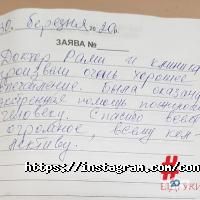 30. березня 20 р.
ЗАЯВА №
Доктор Рами и клиника
произвели очень хорошее
впечатление. Была оказана
экстренная помощь пожилому
человеку. Спасибо всем
огромное, всему кол-
лективу.
https://instagram.com/
#